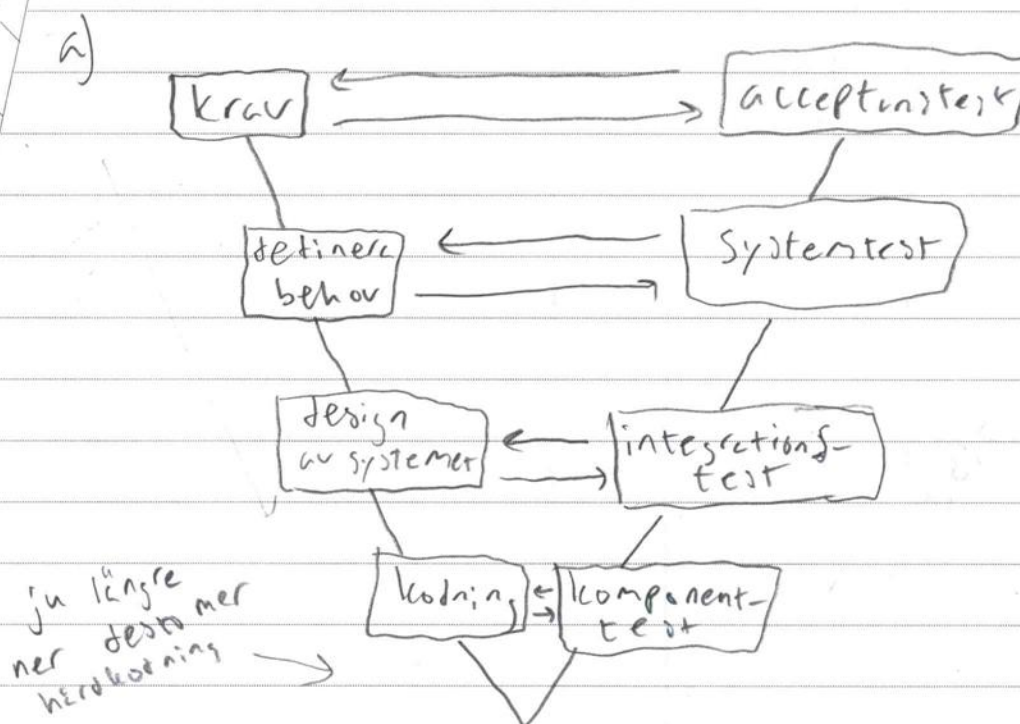 a)
krav
acceptanstest
definera
behov
systemtest
design
av systemet
integrations-
test
kodning
komponent-
test
ju längre
ner desto mer
hårdkodning